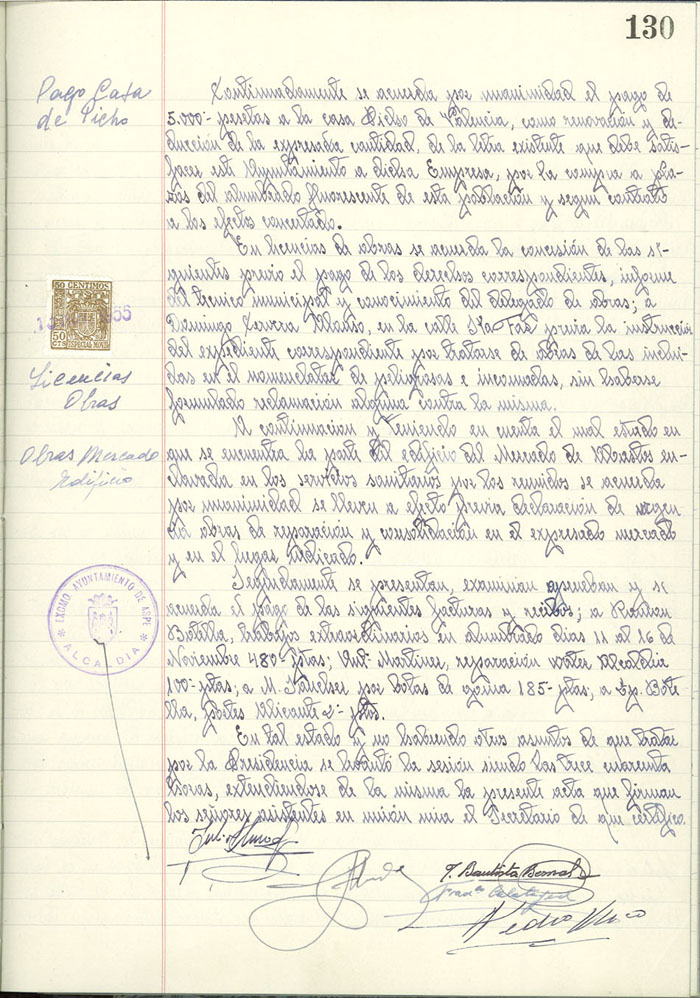 130
Pago Casa
de Picho
Continuadamente se acuerda por unanimidad el pago de
5.000'- pesetas a la casa de Valencia, como renovación y de-
ducción de la expresada cantidad, de la letra existente que debe satis-
facer este Ayuntamiento a dicha Empresa, por la compra a pla-
zos del alumbrado fluorescente de esta población y segun contrato
a los efectos concertado.
En licencias de obras se acuerda la concesión de las si-
guientes previo el pago de los derechos correspondientes, informe
del tecnico municipal y conocimiento del delegado de obras; a
Domingo Alonso, en la calle previa la instrucción
del expediente correspondiente por tratarse de obras de las inclui-
das en el nomenclator de peligrosas e incomodas, sin haberse
formulado reclamación alguna contra la misma.
50 CENTIMOS
50
CTS ESPECIAL MOVIL
Licencias
Obras
Obras Mercado
Edificio
A continuacion y teniendo en cuenta el mal estado en
que se encuentra la parte del edificio del Mercado de Abastos en-
clavada en los servicios sanitarios por los reunidos se acuerda
por unanimidad se lleven a efecto previa declaración de urgen-
cia obras de reparación y consolidación en el expresado mercado
y en el lugar indicado.
EXCMO. AYUNTAMIENTO DE ASPE
* ALCALDIA *
Seguidamente se presentan, examinan aprueban y se
acuerda el pago de las siguientes facturas y recibos; a Ramon
Botella, trabajos extraordinarios en alumbrado dias 11 al 16 de
Noviembre 480'- ptas; Antº Martinez, reparación water Alcaldia
100'- ptas; a M. Sanchez por botas de goma 185'- ptas, a Bote-
lla, portes Alicante 2'- ptas.
En tal estado y no habiendo otros asuntos de que tratar
por la Presidencia se levantó la sesión siendo las trece cuarenta
horas, extendiendose de la misma la presente acta que firman
los señores asistentes en unión mia el Secretario de que certifico.
J. Bautista Bernal
Pedro